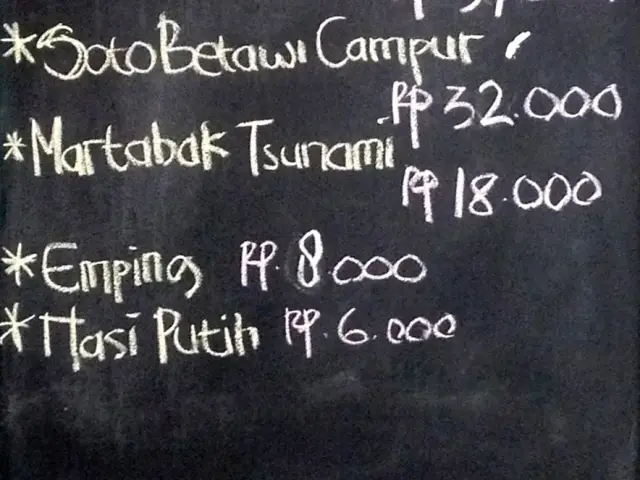 *Soto Betawi Campur
Rp 32.000
*Martabak Tsunami
Rp 18.000
*Emping Rp. 8.000
*Nasi Putih Rp. 6.000